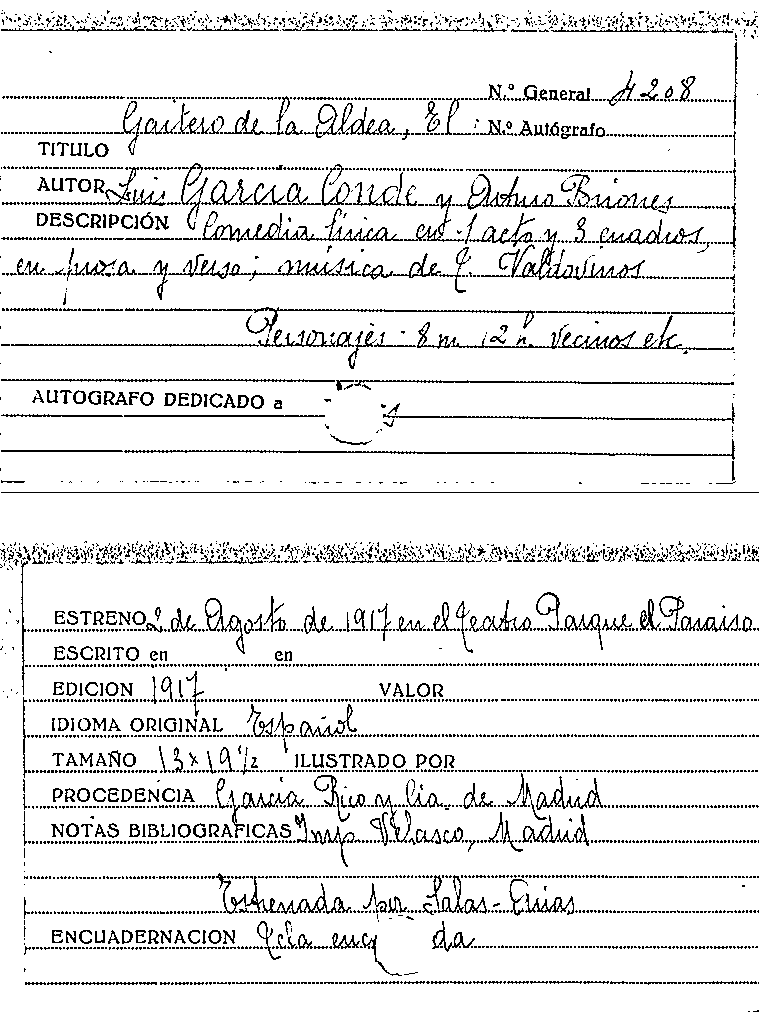 N.º General 4208
Gaitero de la Aldea, El : N.º Autógrafo
TITULO
AUTOR Luis García Conde y Arturo Briones
DESCRIPCIÓN Comedia lírica en 1 acto y 3 cuadros,
en prosa y verso; música de Q. Valdovinos
Personajes - 8 m. 12 h. vecinos etc.
AUTOGRAFO DEDICADO a
ESTRENO 2 de Agosto de 1917 en el Teatro Parque el Paraiso
ESCRITO en en
EDICION 1917 VALOR
IDIOMA ORIGINAL Español
TAMAÑO 13x19½ ILUSTRADO POR
PROCEDENCIA García Rico y Cia. de Madrid
NOTAS BIBLIOGRAFICAS Imp Velasco, Madrid
Estrenada por Salas-
ENCUADERNACION Tela